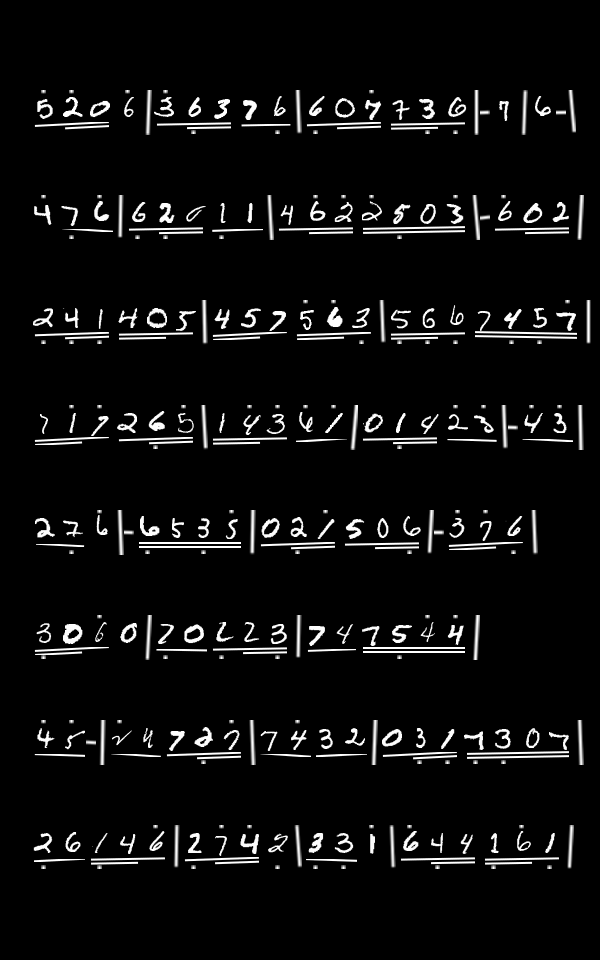 5206|36376|607736|-7|6-|
476|62011|4622503|-602|
241405|457563|5667457|
717265|14361|01423|-43|
276|-6535|021506|-376|
30600|20223|747544|
45-|24727|7432|0317307|
26146|2742|331|644161|